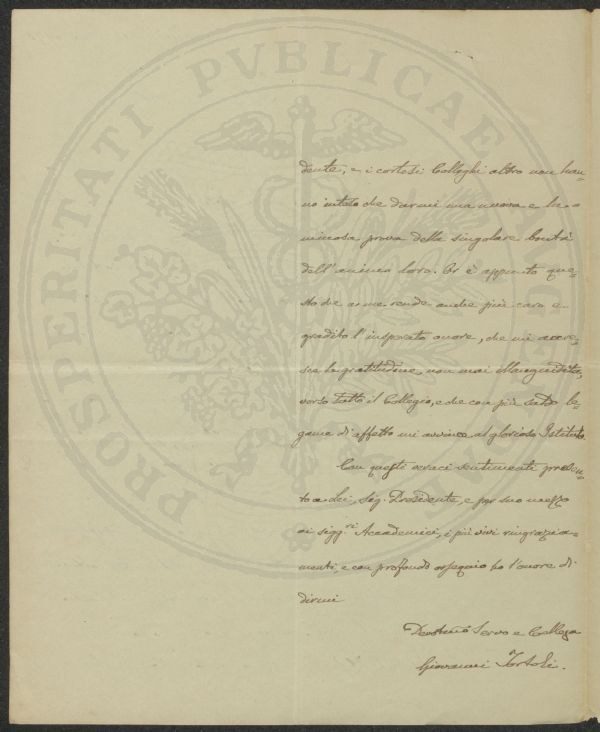 PROSPERITATI PVBLICAE
dente, e i cortesi Colleghi altro non han-
no inteso che darmi una nuova e lu-
minosa prova della singolare bontà
dell'animo loro. Or è appunto que-
sto che a me rende anche più caro e
gradito l'insperato onore, che mi accre-
sce la gratitudine, non mai illanguidita,
verso tutto il Collegio, e che con più saldo le-
game di affetto mi avvince al glorioso Istituto.
Con questi veraci sentimenti presen-
to a Lei, Sig. Presidente, e per suo mezzo
ai Sigg.ri Accademici, i più vivi ringrazia-
menti, e con profondo ossequio ho l'onore di
dirmi
Devotmo Servo e Collega
Giovanni Tortoli.